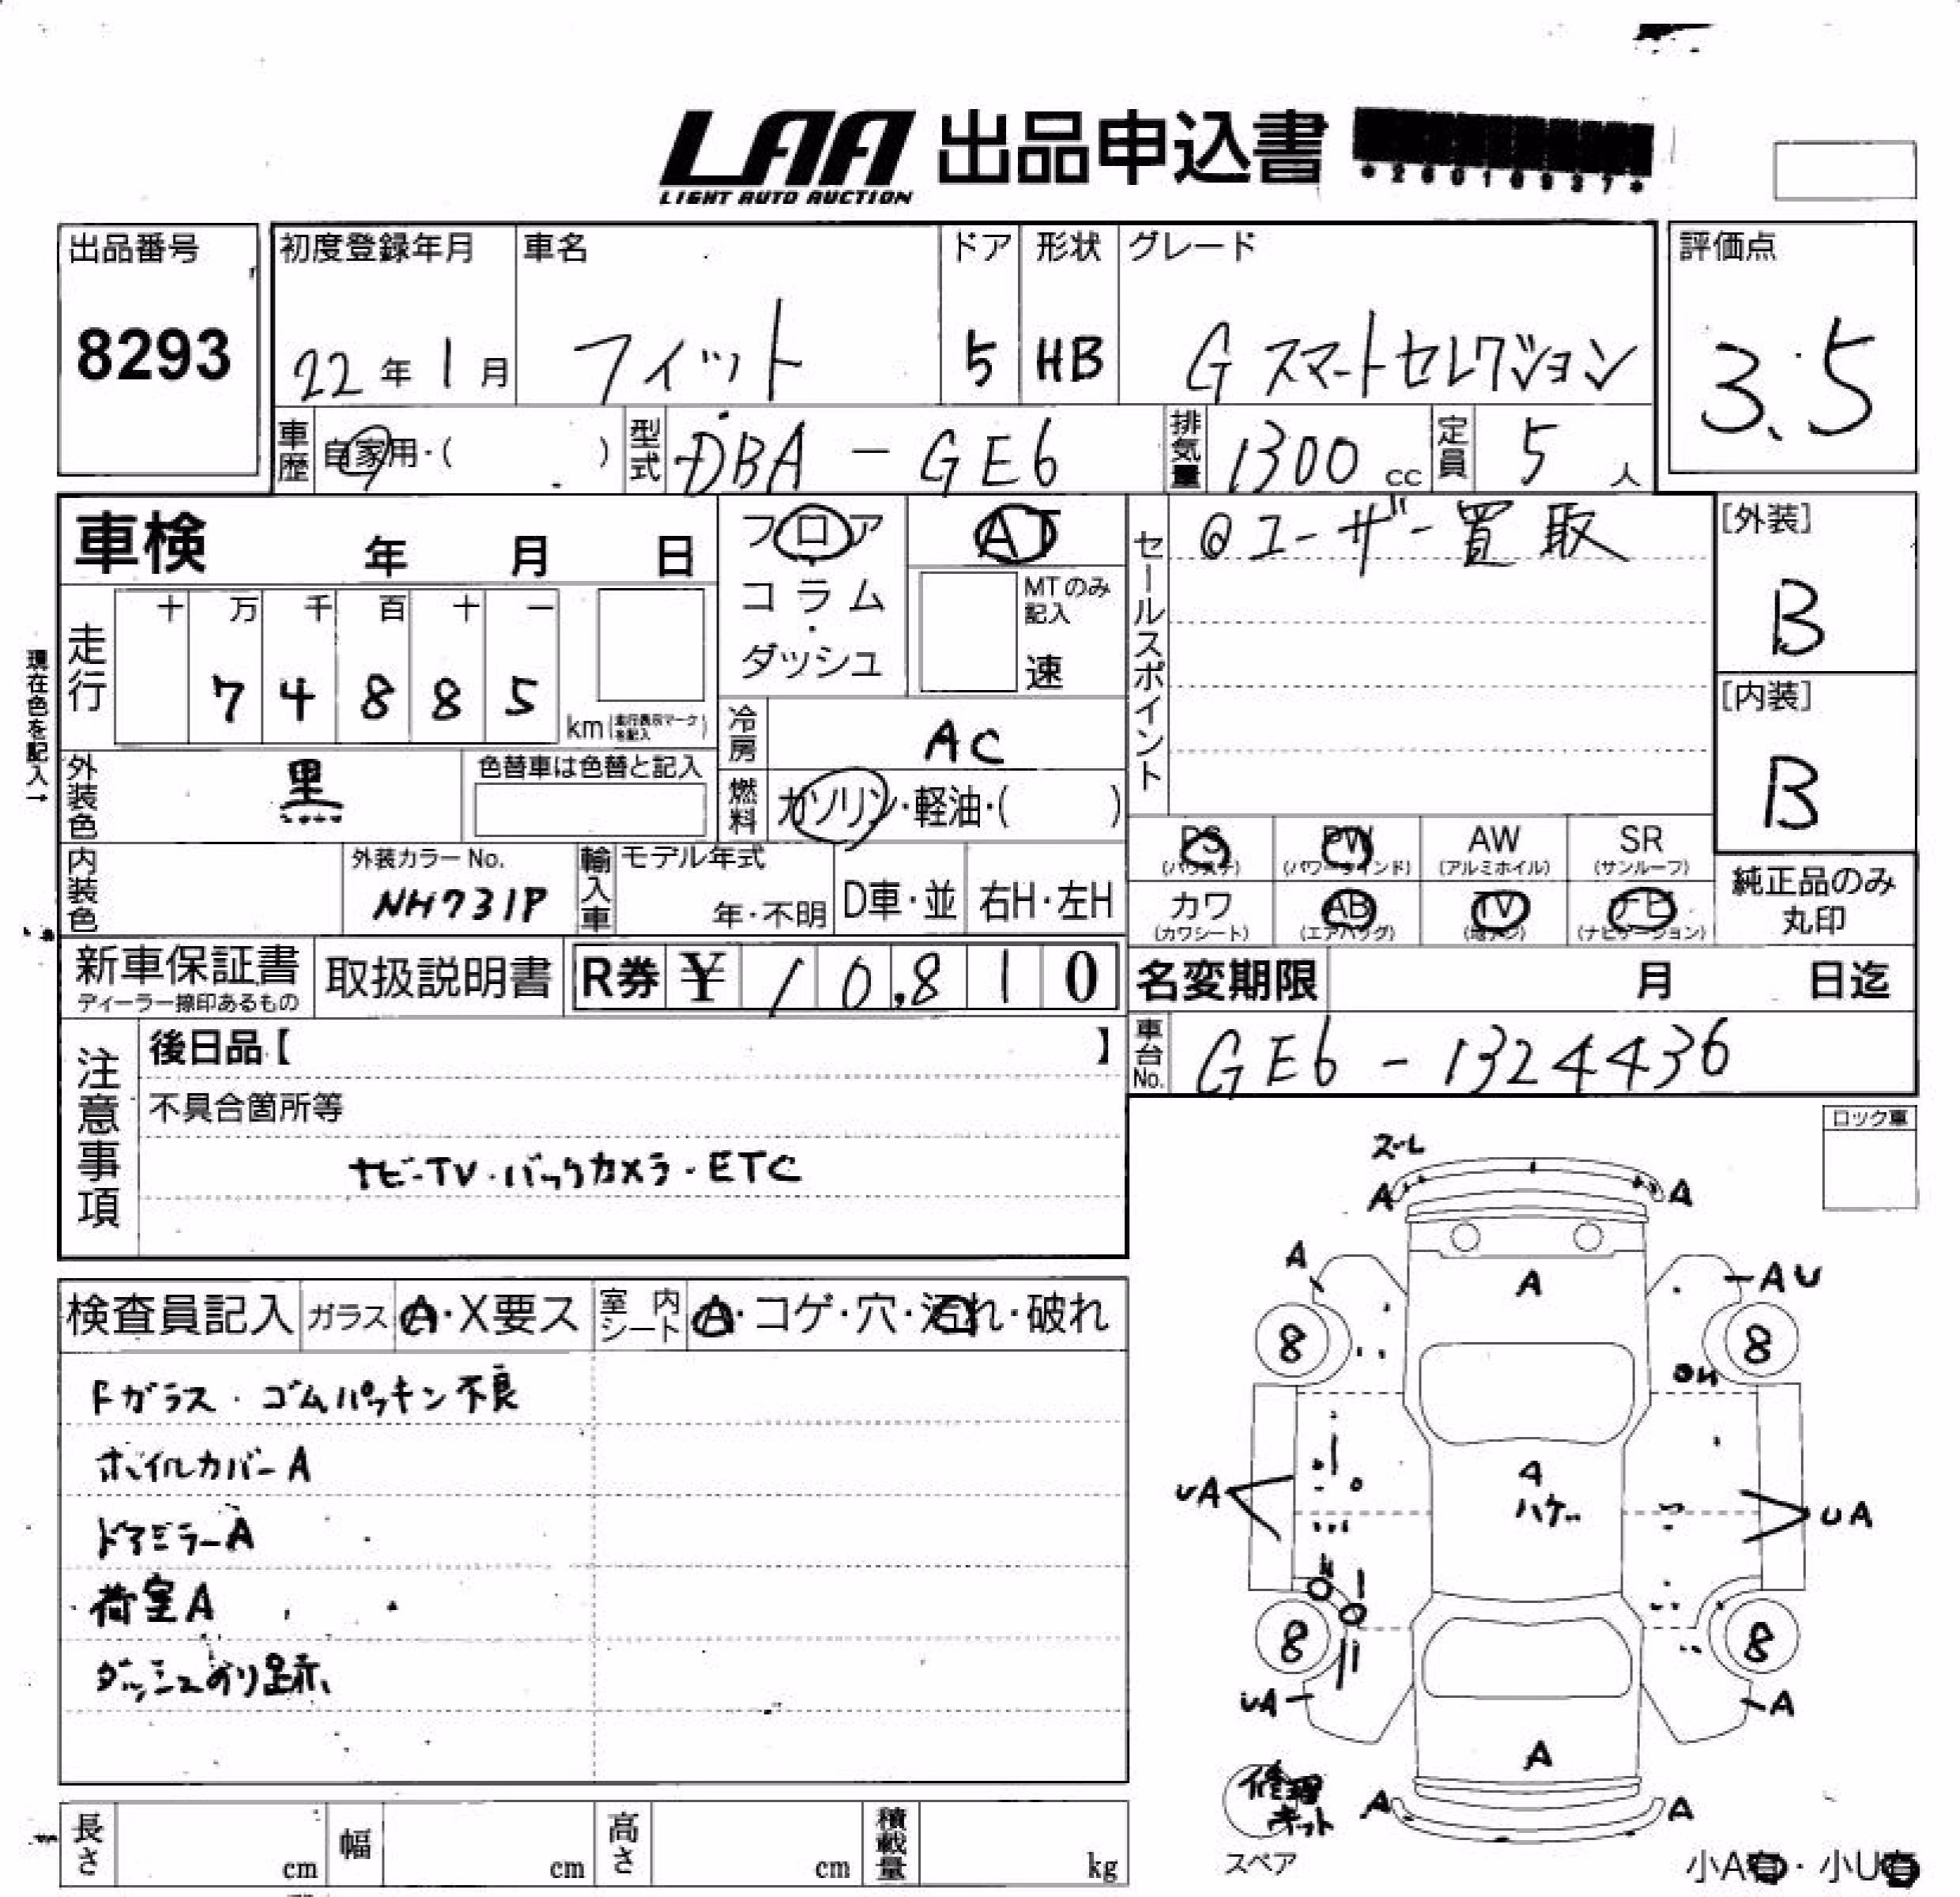 LAA 出品申込書
LIGHT AUTO AUCTION
出品番号
8293
初度登録年月
22年1月
車名
フィット
ドア
5
形状
HB
グレード
G スマートセレクション
評価点
3.5
車歴
自家用・( )
型式
DBA-GE6
排気量
1300 cc
定員
5 人
車検 年 月 日
フロア
コラム
・
ダッシュ
AT
MTのみ
記入
速
セールスポイント
@ユーザー買取
[外装]
B
[内装]
B
現在色を記入→
走行
十 万 千 百 十 一
7 4 8 8 5
km(走行表示マークを記入)
冷房
AC
外装色
黒
色替車は色替と記入
燃料
ガソリン・軽油・( )
PS
(パワステ)
PW
(パワーウインド)
AW
(アルミホイル)
SR
(サンルーフ)
内装色
外装カラーNo.
NH731P
輸入車
モデル年式
年・不明
D車・並
右H・左H
カワ
(カワシート)
AB
(エアバッグ)
TV
(地デジ)
ナビ
(ナビゲーション)
純正品のみ
丸印
新車保証書
ディーラー捺印あるもの
取扱説明書
R券 ¥ 10,810
名変期限 月 日迄
車台No.
GE6-1324436
注意事項
後日品【 】
不具合箇所等
ナビ-TV・バックカメラ・ETC
ロック車
検査員記入
ガラス
A・X要ス
室内シート
A・コゲ・穴・汚れ・破れ
Fガラス・ゴムパッキン不良
ホイルカバーA
ドアミラーA
荷室A
ダッシュのり跡
ズレ
A A
A
A
AU
8 8
UA
A
ハゲ
UA
8 8
UA
A
A
A A
修理
キット
スペア
小A有・小U有
長さ cm
幅 cm
高さ cm
積載量 kg